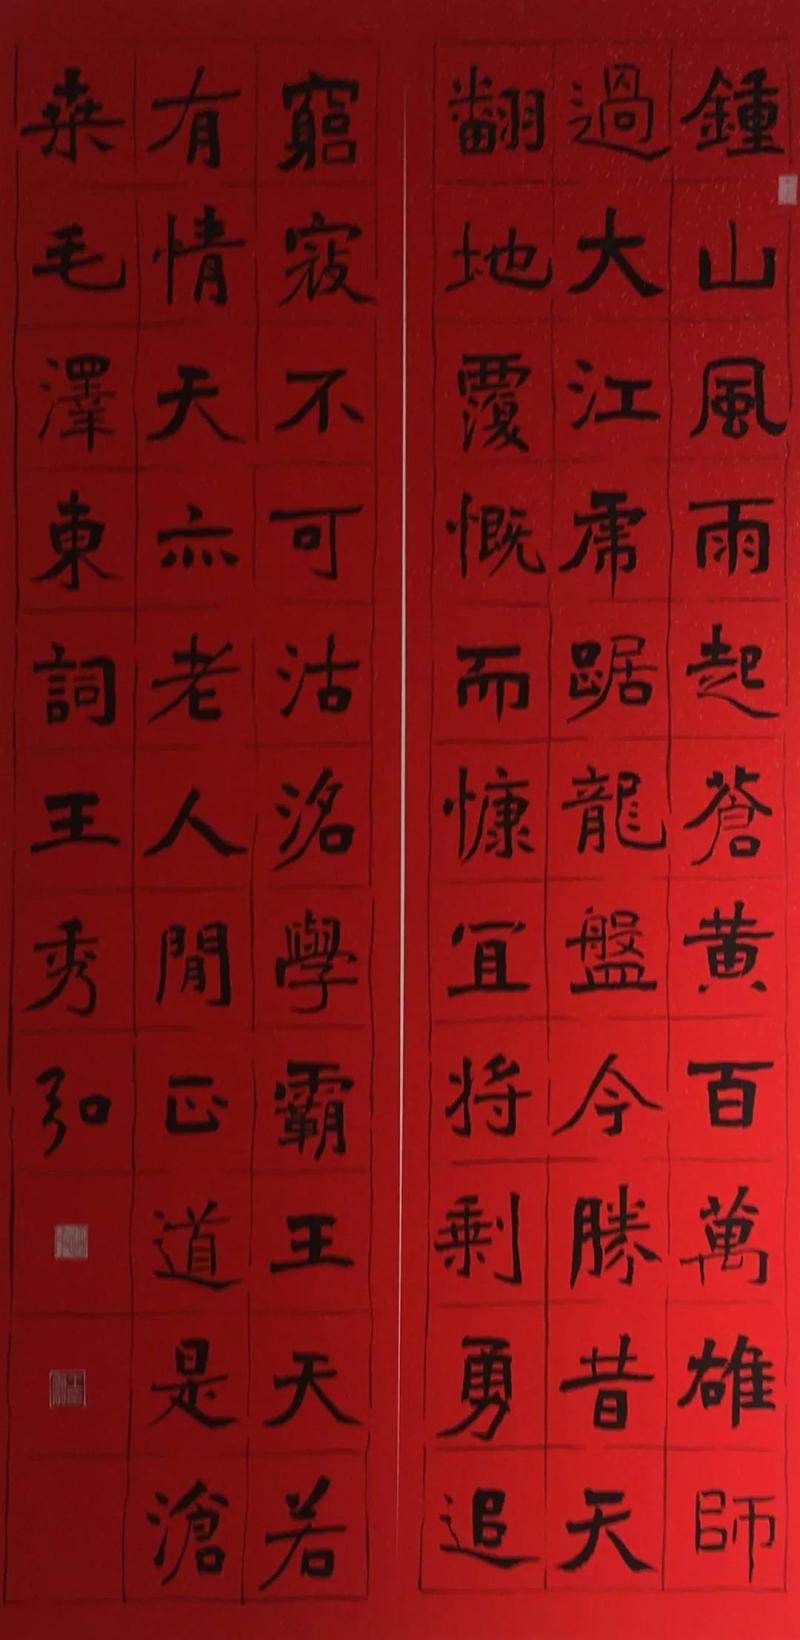 鍾山風雨起蒼黃百萬雄師
過大江虎踞龍盤今勝昔天
翻地覆慨而慷宜將剩勇追
窮寇不可沽洺學霸王天若
有情天亦老人間正道是滄
桑毛澤東詞王秀弘